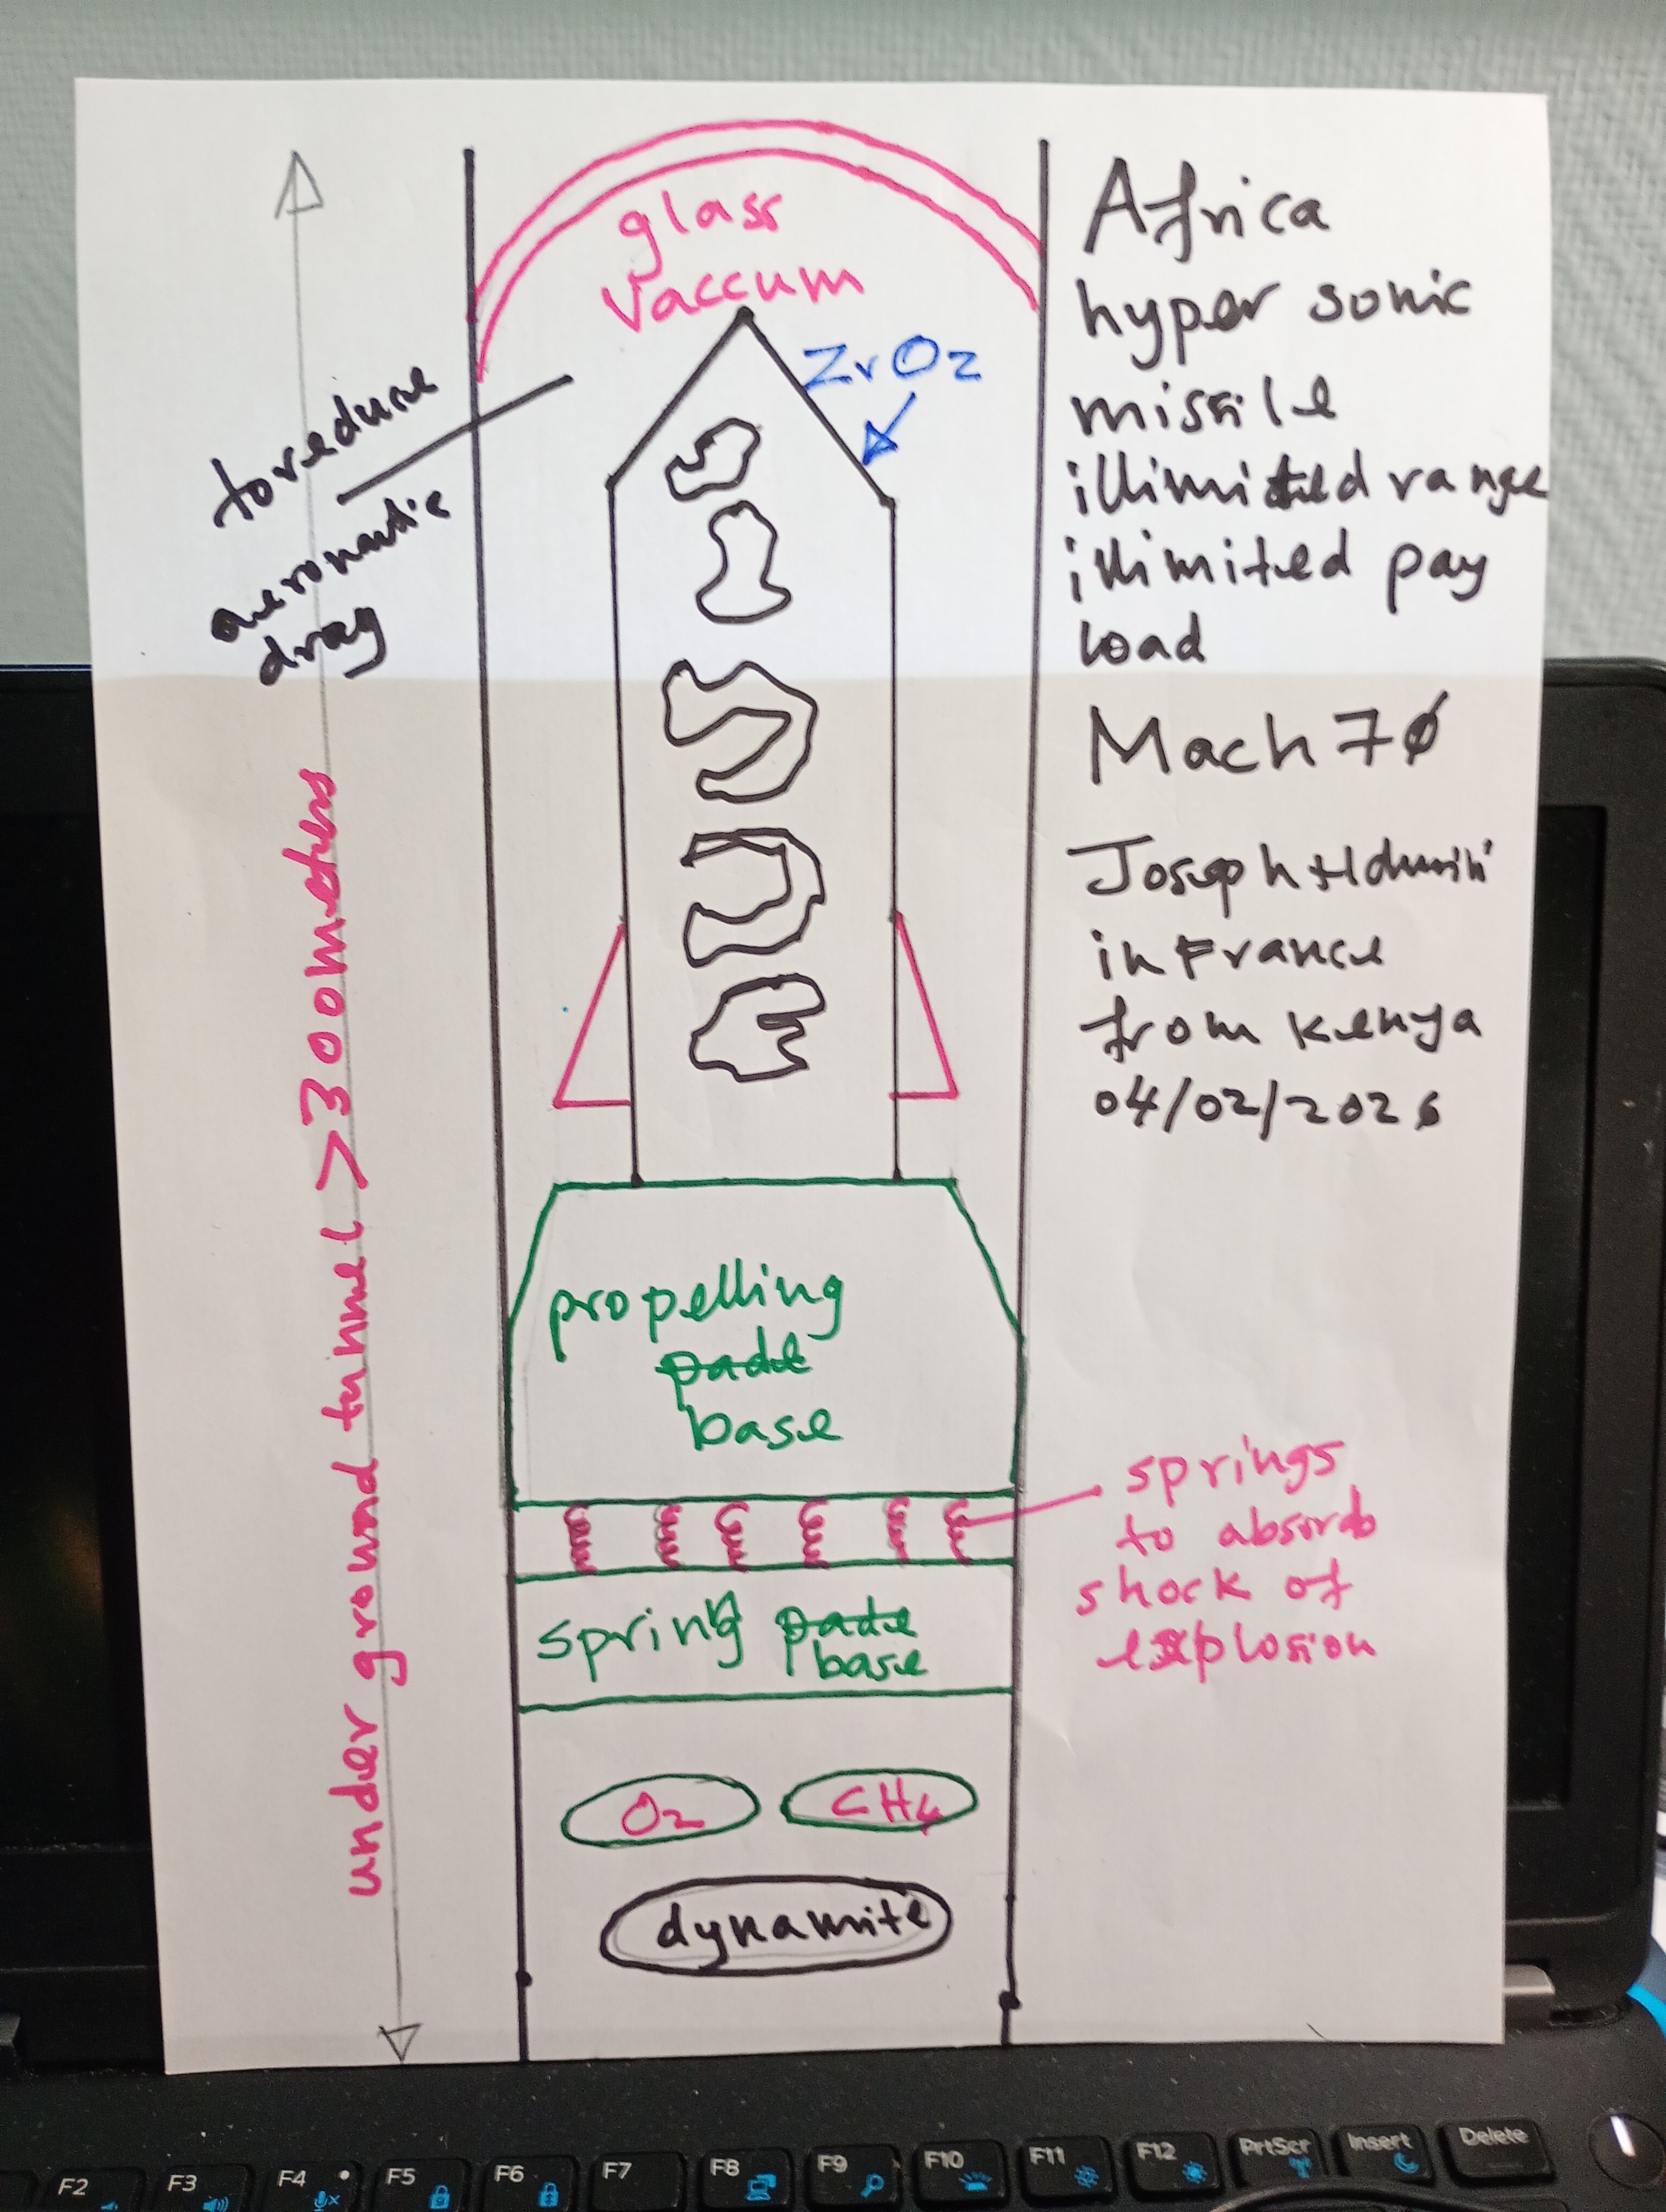 glass
vaccum
ZrO2
to reduce
aeronautic
drag
under ground tunnel > 300 meters
Africa
hyper sonic
missile
illimited range
illimited pay
load
Mach 70
Joseph
in France
from Kenya
04/02/2026
propelling
base
springs
to absorb
shock of
explosion
spring
base
O2
CH4
dynamite
F2
F3
F4
F5
F6
F7
F8
F9
F10
F11
F12
PrtScr
Insert
Delete